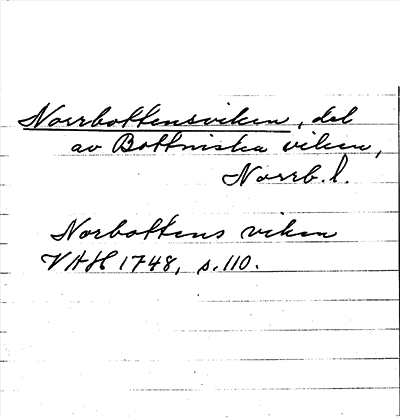 Norrbottensviken, del
av Bottniska viken,
Norrb. l.
Norbottens viken
VAH 1748, s. 110.